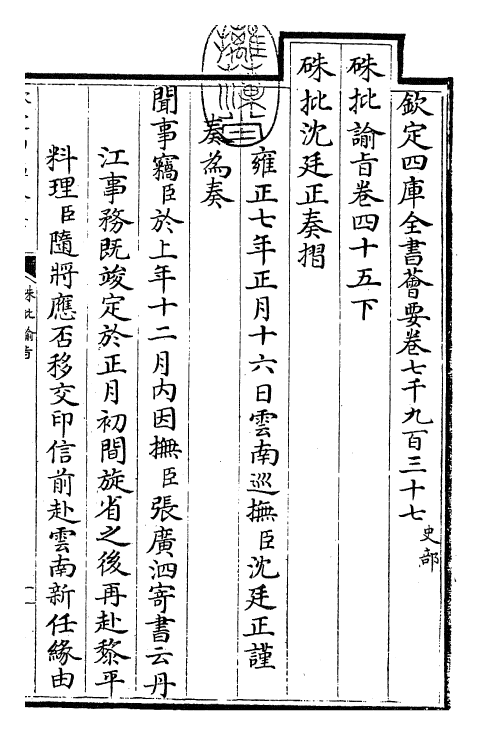 欽定四庫全書薈要卷七千九百三十七
史部
硃批諭旨卷四十五下
硃批沈廷正奏摺
雍正七年正月十六日雲南巡撫臣沈廷正謹
奏為奏
聞事竊臣於上年十二月內因撫臣張廣泗寄書云丹
江事務既竣定於正月初間旋省之後再赴黎平
料理臣隨將應否移交印信前赴雲南新任緣由
硃批諭旨
一